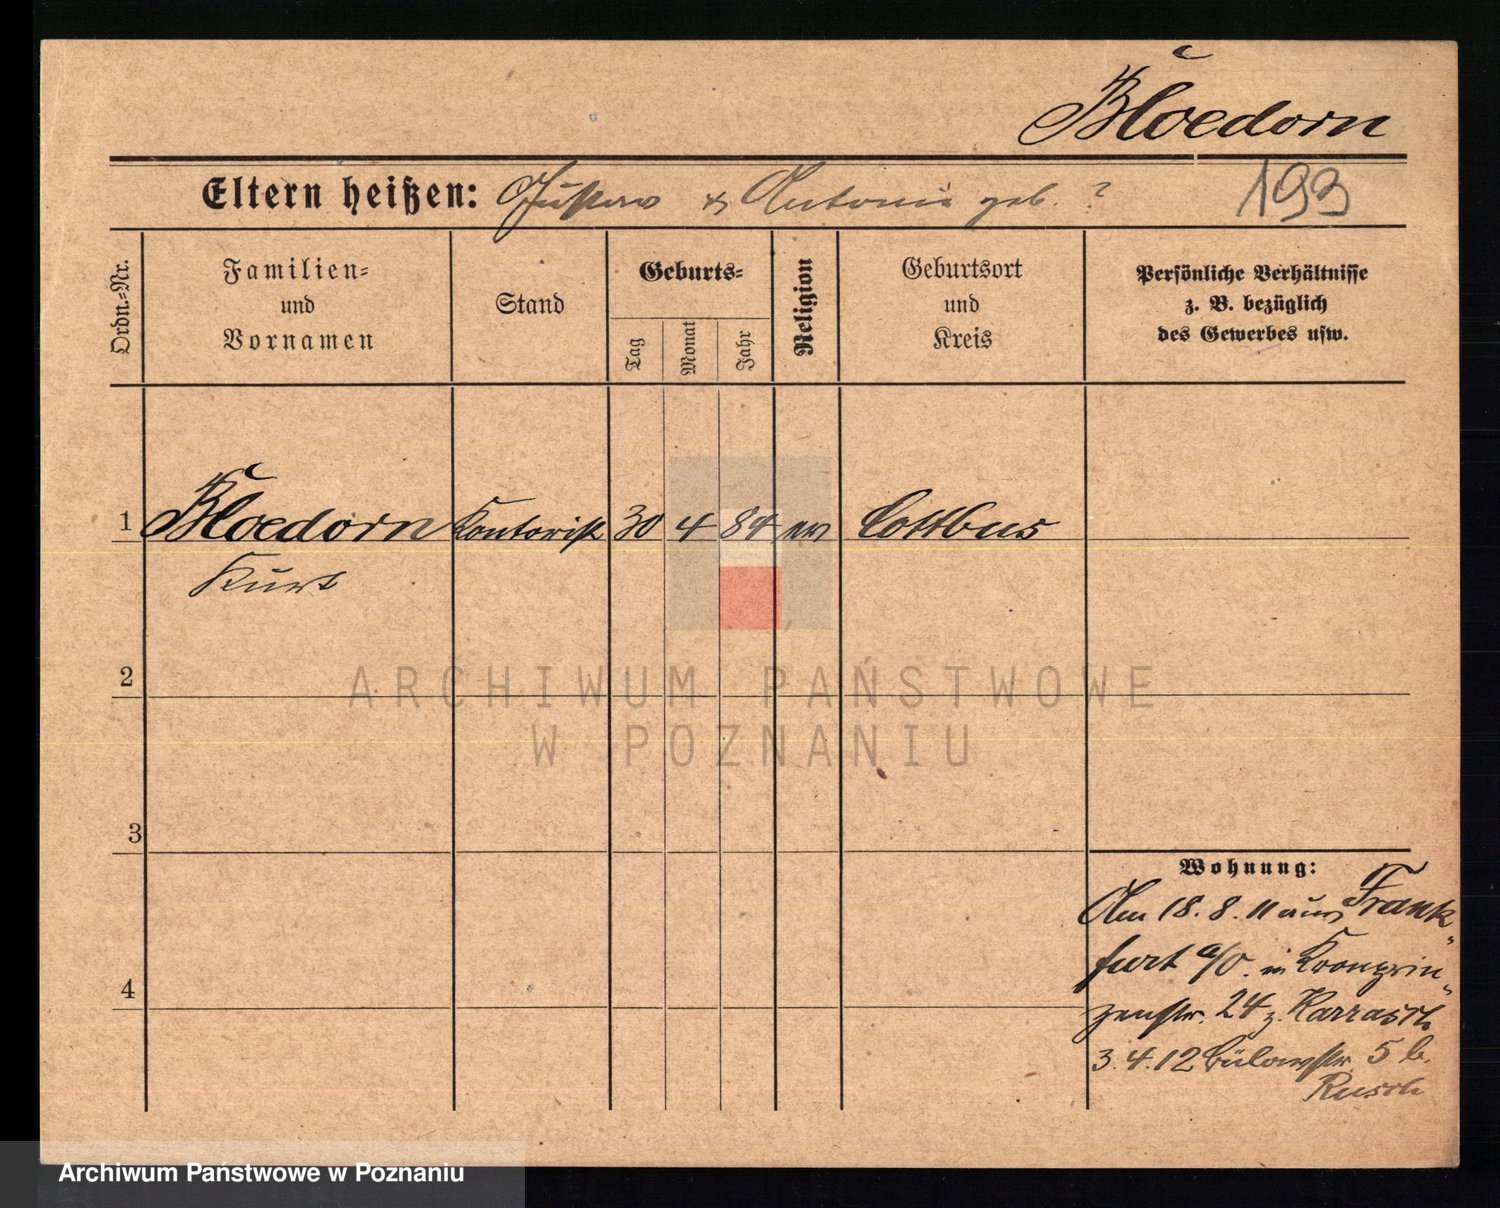 Bloedorn
Eltern heißen: Gustav & Antonie geb. ? 193
Ordn.-Nr.
Familien-
und
Vornamen
Stand
Geburts-
Tag
Monat
Jahr
Religion
Geburtsort
und
Kreis
Persönliche Verhältnisse
z. B. bezüglich
des Gewerbes usw.
1 Bloedorn Kontorist 30 4 84 ev Cottbus
Kurt
2
3
4
Wohnung:
Am 18. 8. 11 aus Frank-
furt a/O. in Kronprin-
zenstr. 24 z. Karrasch
3. 4. 12 Bülowstr. 5 b.
Rusch
ARCHIWUM PAŃSTWOWE
W POZNANIU
Archiwum Państwowe w Poznaniu